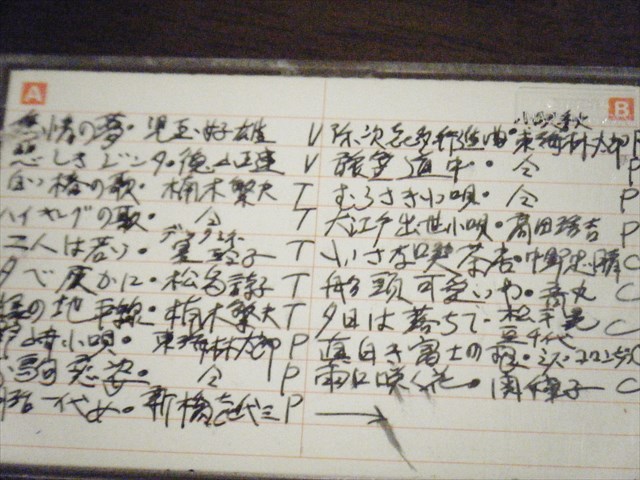 A
無情の夢・児玉好雄 V
悲しきジンタ・徳山璉 V
白い椿の歌・楠木繁夫 T
ハイキングの歌・仝 T
二人は若い・ディック・ミネ 星玲子 T
夕べ仄かに・松島詩子 T
緑の地平線・楠木繁夫 T
野崎小唄・東海林太郎 P
仝 P
一代女・新橋喜代三 P
B
弥次喜多行進曲・東海林太郎 P
道中・仝 P
むらさき小唄・仝 P
大江戸出世小唄・高田浩吉 P
小さな喫茶店・中野忠晴 C
船頭可愛いや・音丸 C
夕日は落ちて・松平晃 豆千代 C
真白き富士の C
雨に咲く花・関種子 C